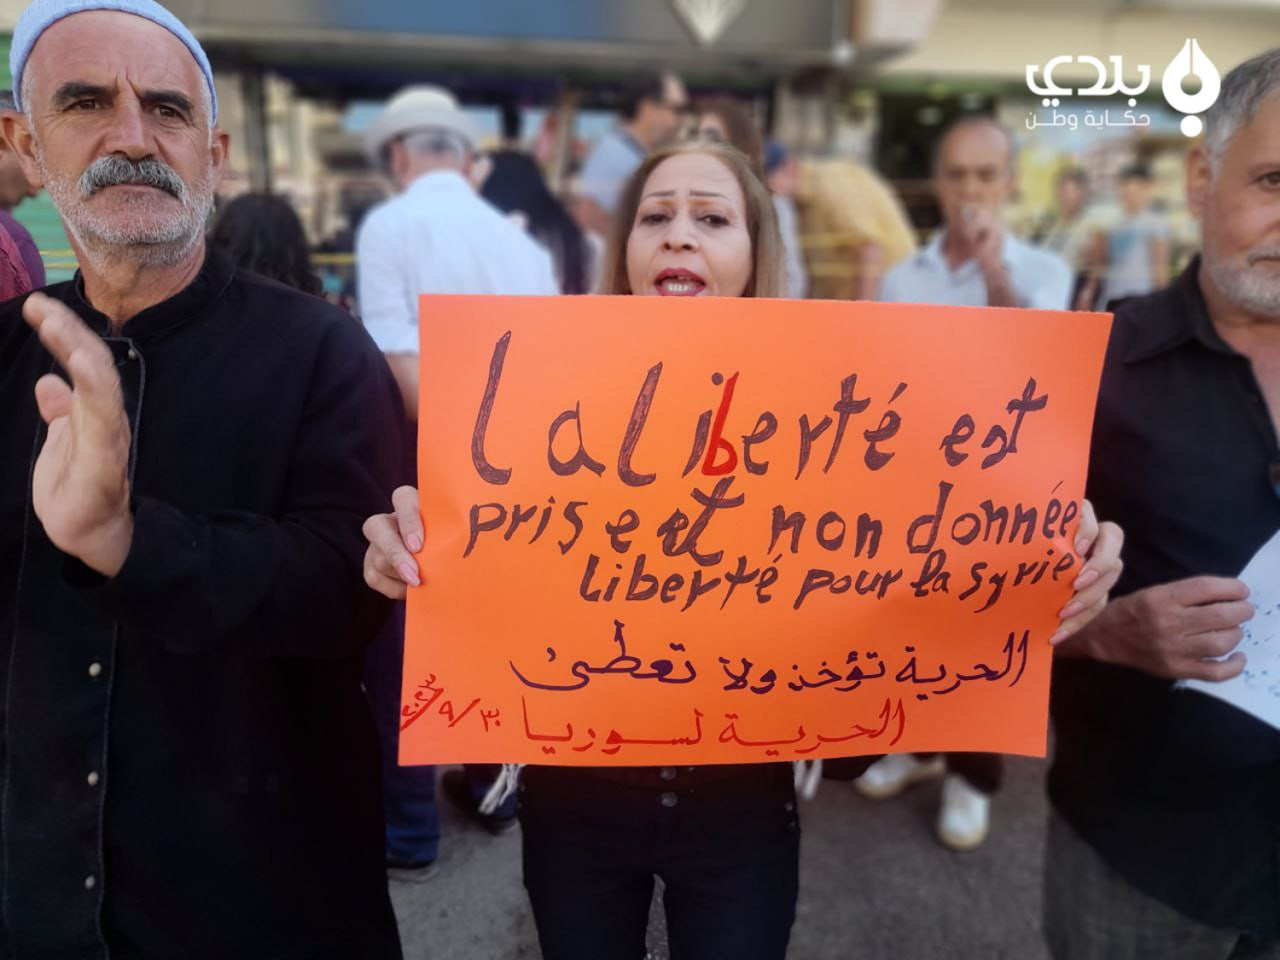 بلدي
حكاية وطن
la liberté est
prise et non donnée
liberté pour la syrie
الحرية تؤخذ ولا تعطىٰ
الحرية لسوريا ٢٠٢٣/٩/٣٠